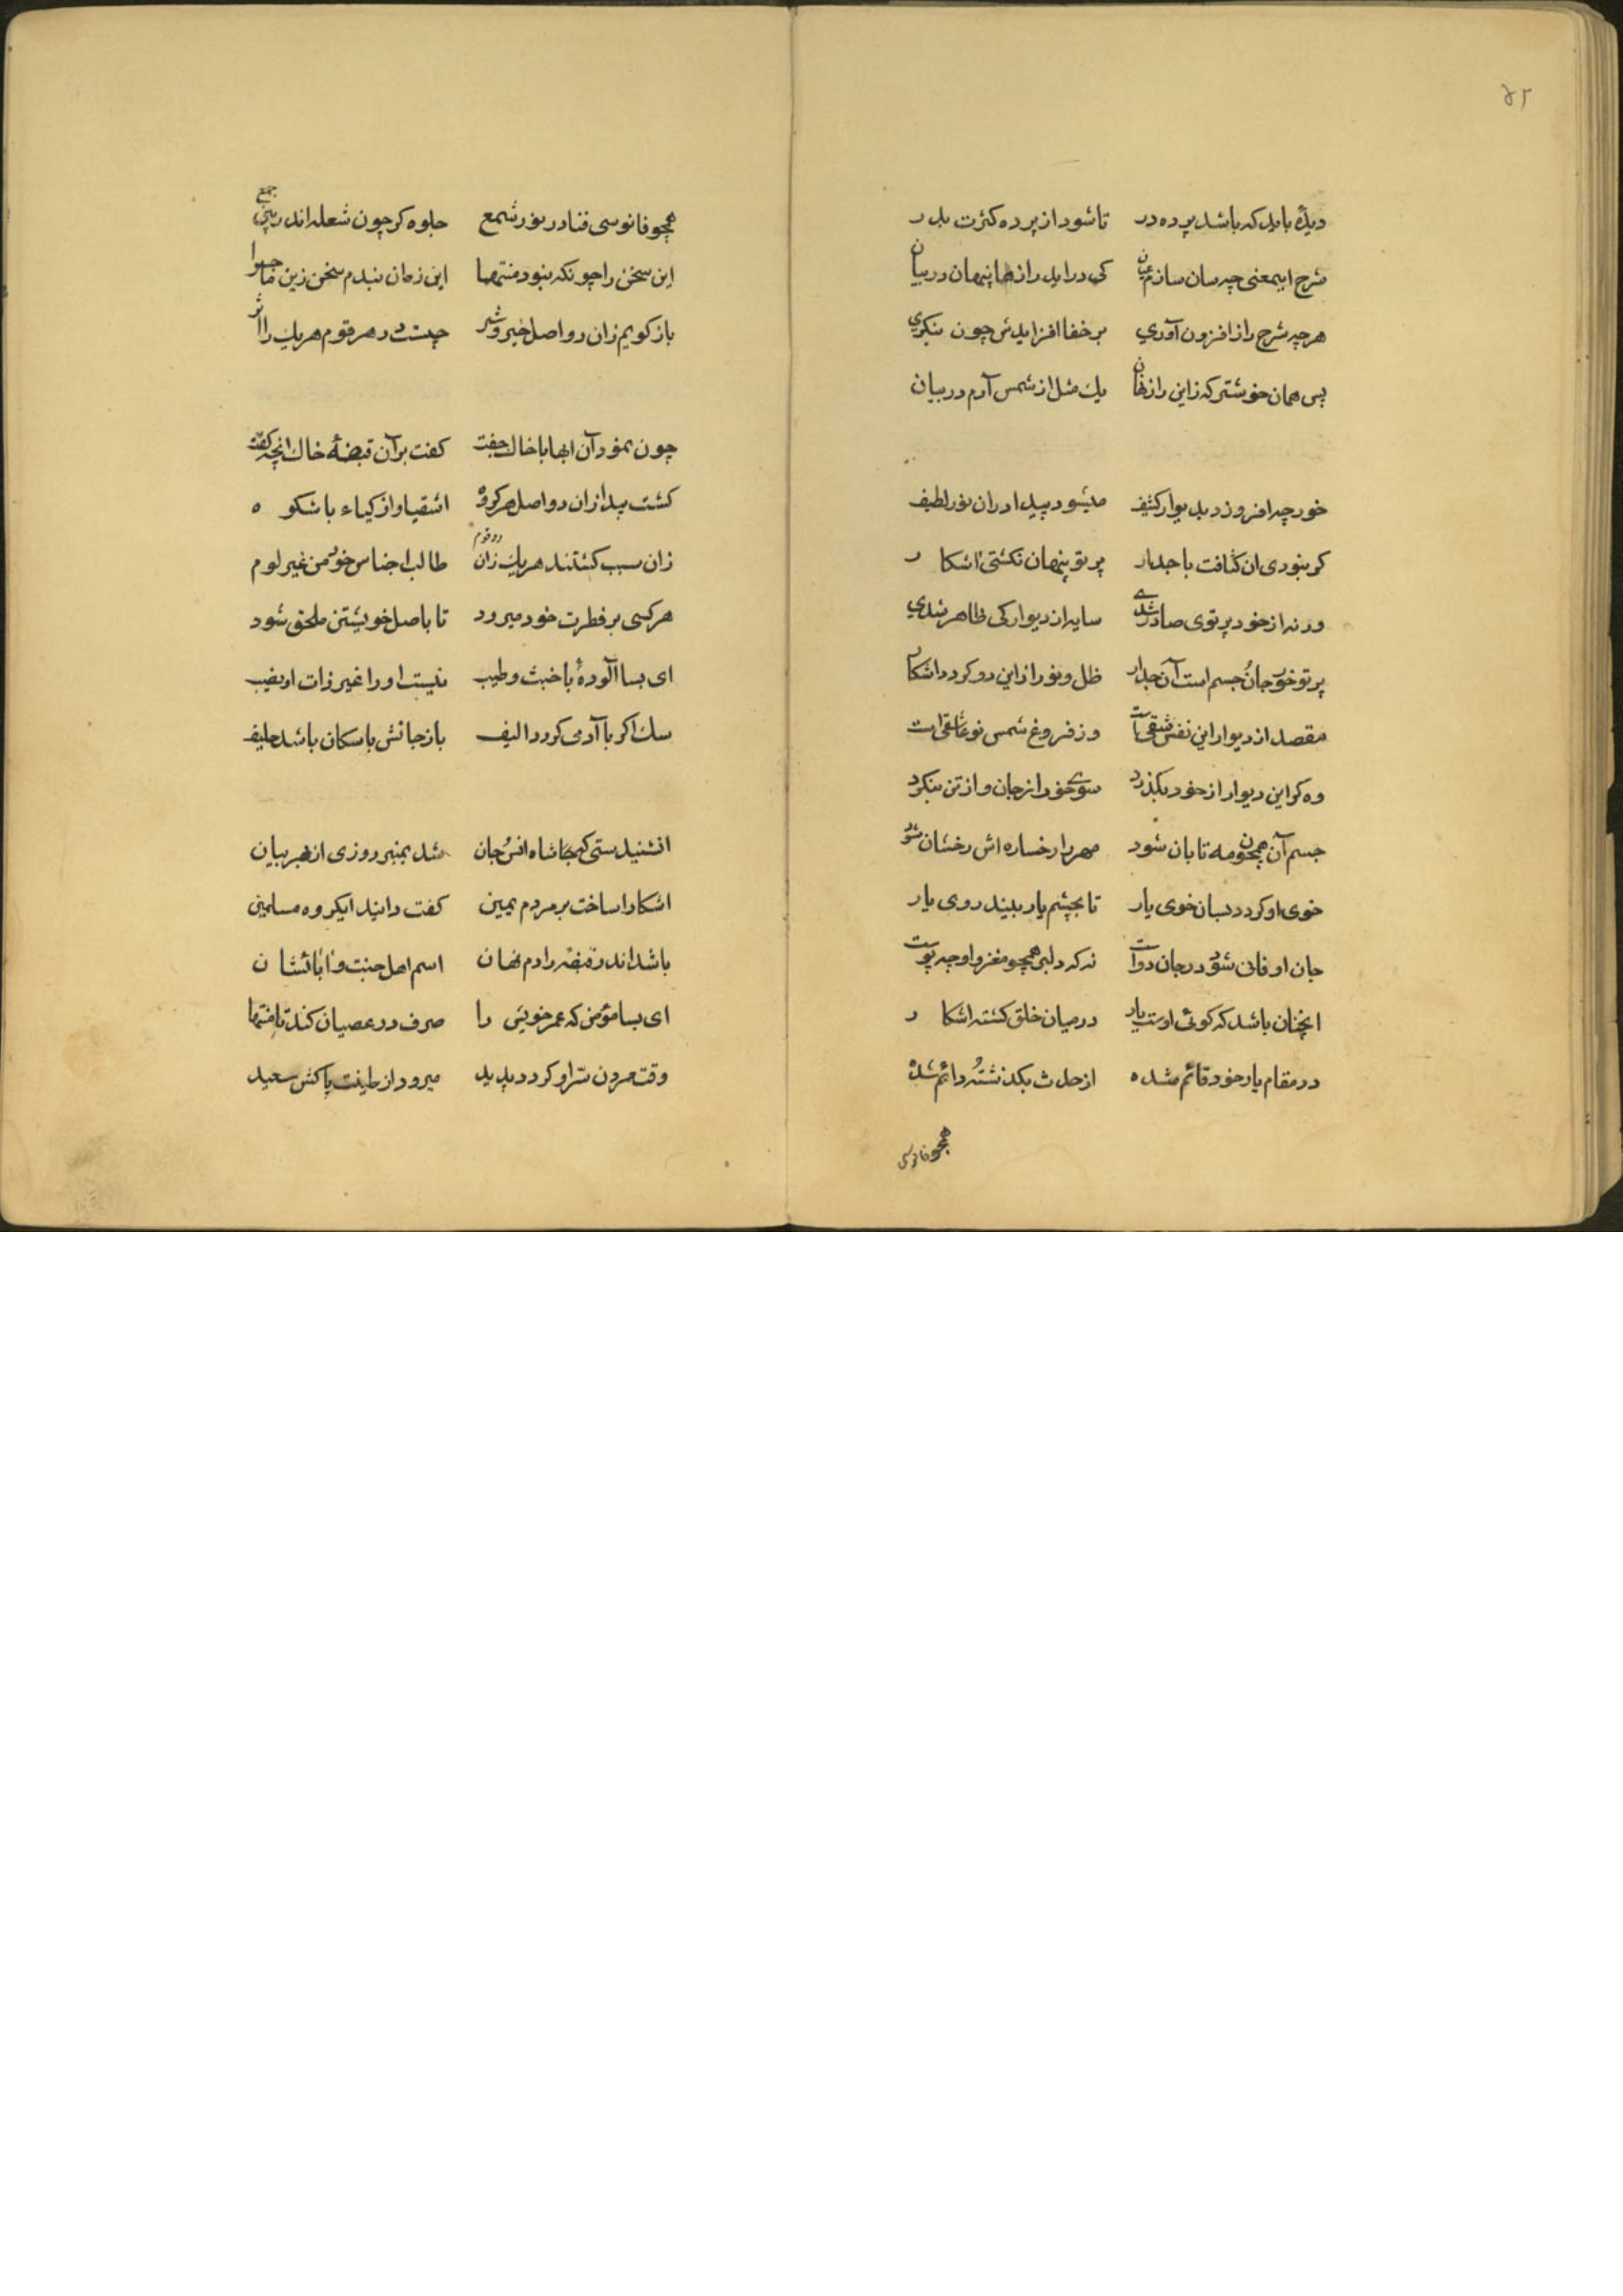 ۴۲
دیدهٔ باید که باشد پرده در تا شود از پرده کثرت بدر
شرح اینمعنی چه سان سازم عیان کی درآید رازها پنهان در بیان
هر چه شرح راز افزون آوري بر خفا افزایدش چون بنکري
پس همان خوشتر که زاین راز نهان یك مثل از شمس آرم در بیان
خور چه افروزد بدیوار کثیف میشود پیدا در ان نور لطیف
کر نبودی ان کثافت با جدار پرتو پنهان نکشتی اشکار
ورنه از خود پرتوی صادر شدے سایه از دیوار کی ظاهر شدي
پرتو خور جان و جسم است آن جدار ظل و نور از این دو کردد اشکار
مقصد از دیوار این نفس شقی است وز فروغ شمس نو عاشقی است
وه کر این دیوار از خود بکذرد سوے خور از جان و از تن بنکرد
جسم آن همچون مه تابان شود مهروار رخساره اش رخشان شود
خوی او کردد بسان خوی یار تا بچشم یار بیند روی یار
جان او فانی شود در جان دوست نه که دلبر همچو مغز و او چه پوست
انچنان باشد که کوئی اوست یار در میان خلق کشته اشکار
در مقام یار خود قائم شده از حدث بکذشته و دائم شده
همچو فانوسی
همچو فانوسی فنا در نور شمع جلوه کر چون شعله اندر بین جمع
این سخن را چونکه نبود منتها این زمان بندم سخن زین ماجرا
باز کویم زان دو اصل خیر و شر چیست در هر قوم هر یك را اثر
چون نمود آن ابها با خاك جفت کفت بر آن قبضهٔ خاك انچه کفت
کشت پیدا زان دو اصل هر کروه اشقیا و ازکیاء با شکوه
زان سبب کشتند هر یك زان دو قوم طالب اجناس خود من غیر لوم
هر کسی بر فطرت خود میرود تا باصل خویشتن ملحق شود
ای بسا آلودهٔ با خبث و طیب نیست او را غیر زات او نصیب
سك اکر با آدمی کردد الیف باز جانش با سکان باشد حلیف
انشنیدستی که شاه انس و جان شد بمنبر روزی از بهر بیان
اشکارا ساخت بر مردم یمین کفت دانید ایکروه مسلمین
باشد اندر قبضه رادم نهان اسم اهل جنت و آبائشان
ای بسا مؤمن که عمر خویش را صرف در عصیان کند تا منتها
وقت مردن سرّ او کردد پدید میرود از طینت پاکش سعید